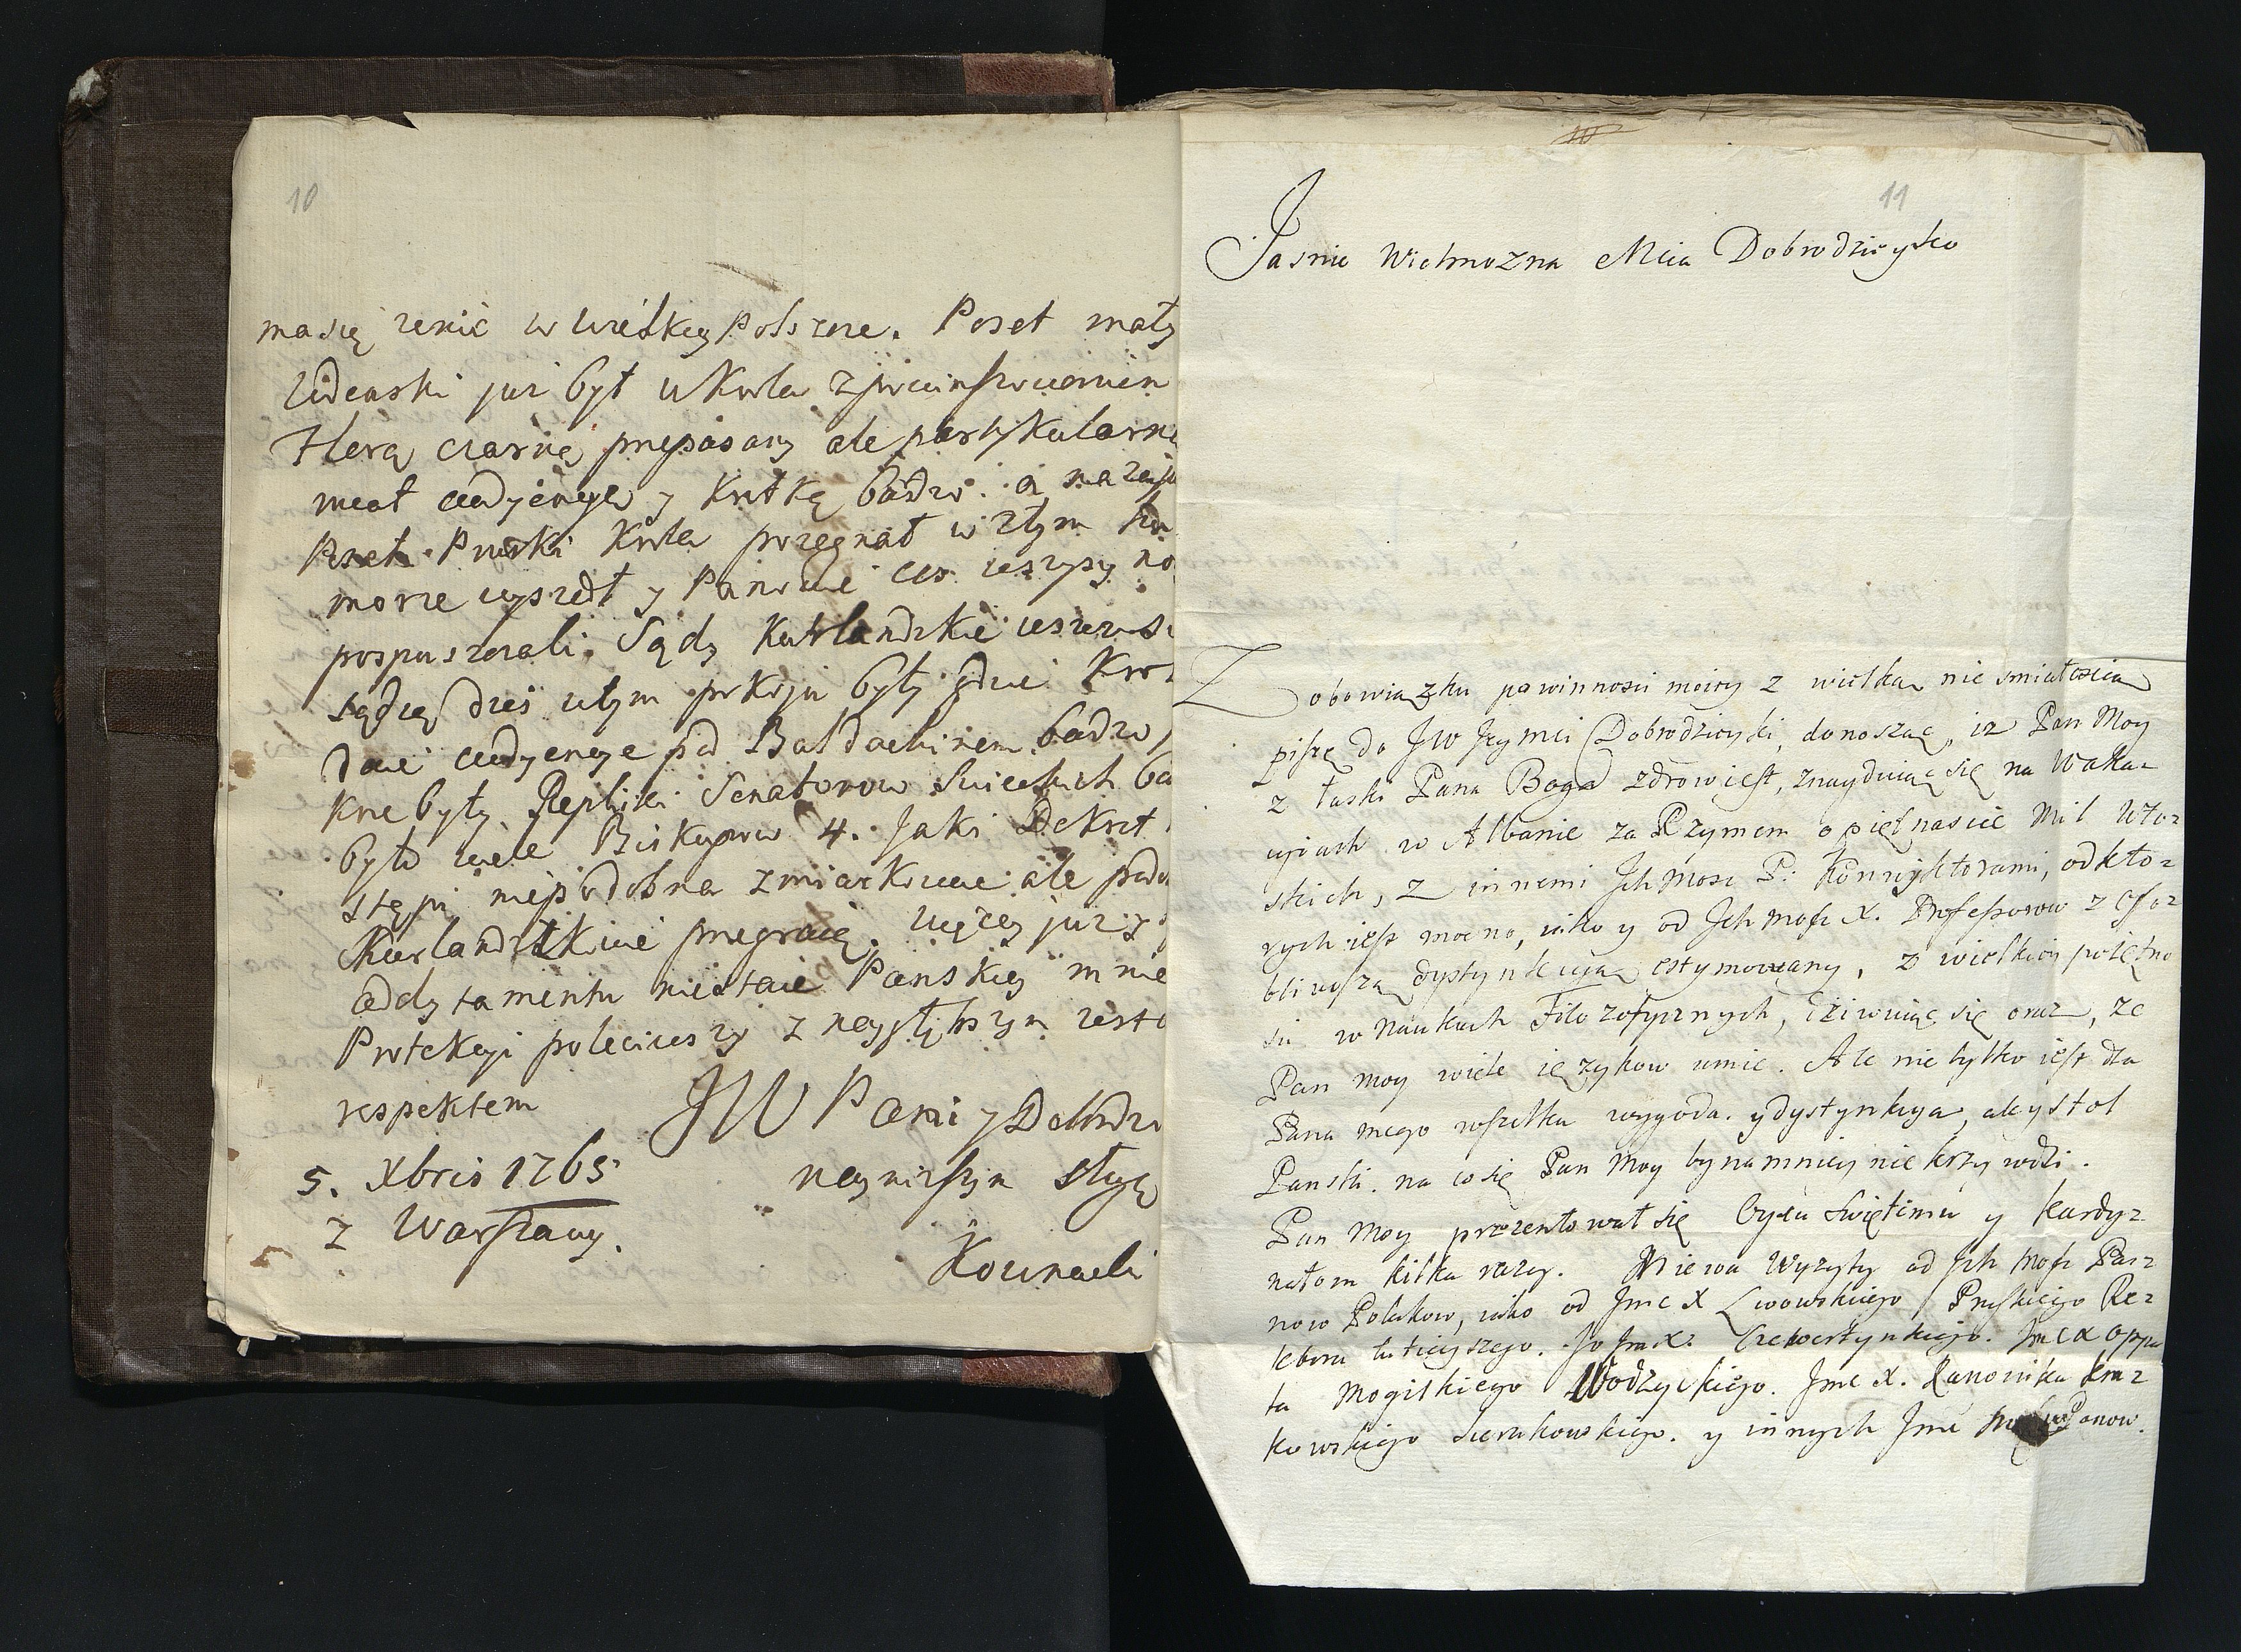 10
ma się zenic w Wielkiey Polszcze. Poset maty
Widenski juz był u Krola z
Flerą czarną prepasany ale partykularną
miał audyencyę y krotką bardzo. a
Poset Pruski Krola pozegnał w złym hu
morze wyszedł y Panowie
pospuszczali. Sądy Kurlandzkie
sądzą dzis w tym pokoju były gdzie Krol
daie audyencye pod Baldachinem bardzo
kne były Repliki Senatorow Swieckich
było wiele Biskupow 4. Jaki Dekret
stąpi niepodobna zmiarkowac ale podo
Kurlandczkowie przegraią. więcey juz
addytamentu niestaie Panskiey mnie
Protekcyi poleciwszy z naygłębszym
respektem JW Pani y Dobrdz
5. Xbris 1765 nayniższym sługą
z Warszawy.
11
Jasnie Wielmozna Mcia Dobrodzieyko
Z obowiązku powinnosci moiey z wielką nie smiałoscią
piszę do JW Jeymci Dobrodzieyki, donosząc, iz Pan Moy
z łaski Pana Boga zdrow iest, znayduiąc się na Waka=
cyiach w Albanie za Rzymem o piętnascie Mil Wło=
skich, z innemi Jch Mosc P. Konwiktorami, od kto=
rych iest mocno, iako y od Jch Mosc X. Professorow z oso=
bliwszą dystynkcyą estymowany, z wielkiey poiętno
sci w Naukach Filozoficznych, dziwuiąc się oraz, ze
Pan moy wiele ięzykow umie. Ale nie tylko iest dla
Pana mego wszelka wygoda. y dystynkcya, ale y stol
Panski. na co się Pan Moy bynamniey nie krzywdzi.
Pan Moy prezentował się Oycu Swiętemu y Kardy=
nałom kilka razy. Miewa Wyzyty od Jch Mosc Pa=
now Polakow, iako od Jmc X Lwowskiego Pruskiego Re=
ktora tuteyszego. Jo Jmx. Czetwertynskiego. Jmc X Oppa
ta Mogilskiego Wodzyckiego. Jmc X. Kanonika Kra=
kowskiego Sierakowskiego. y innych Jmc Panow.